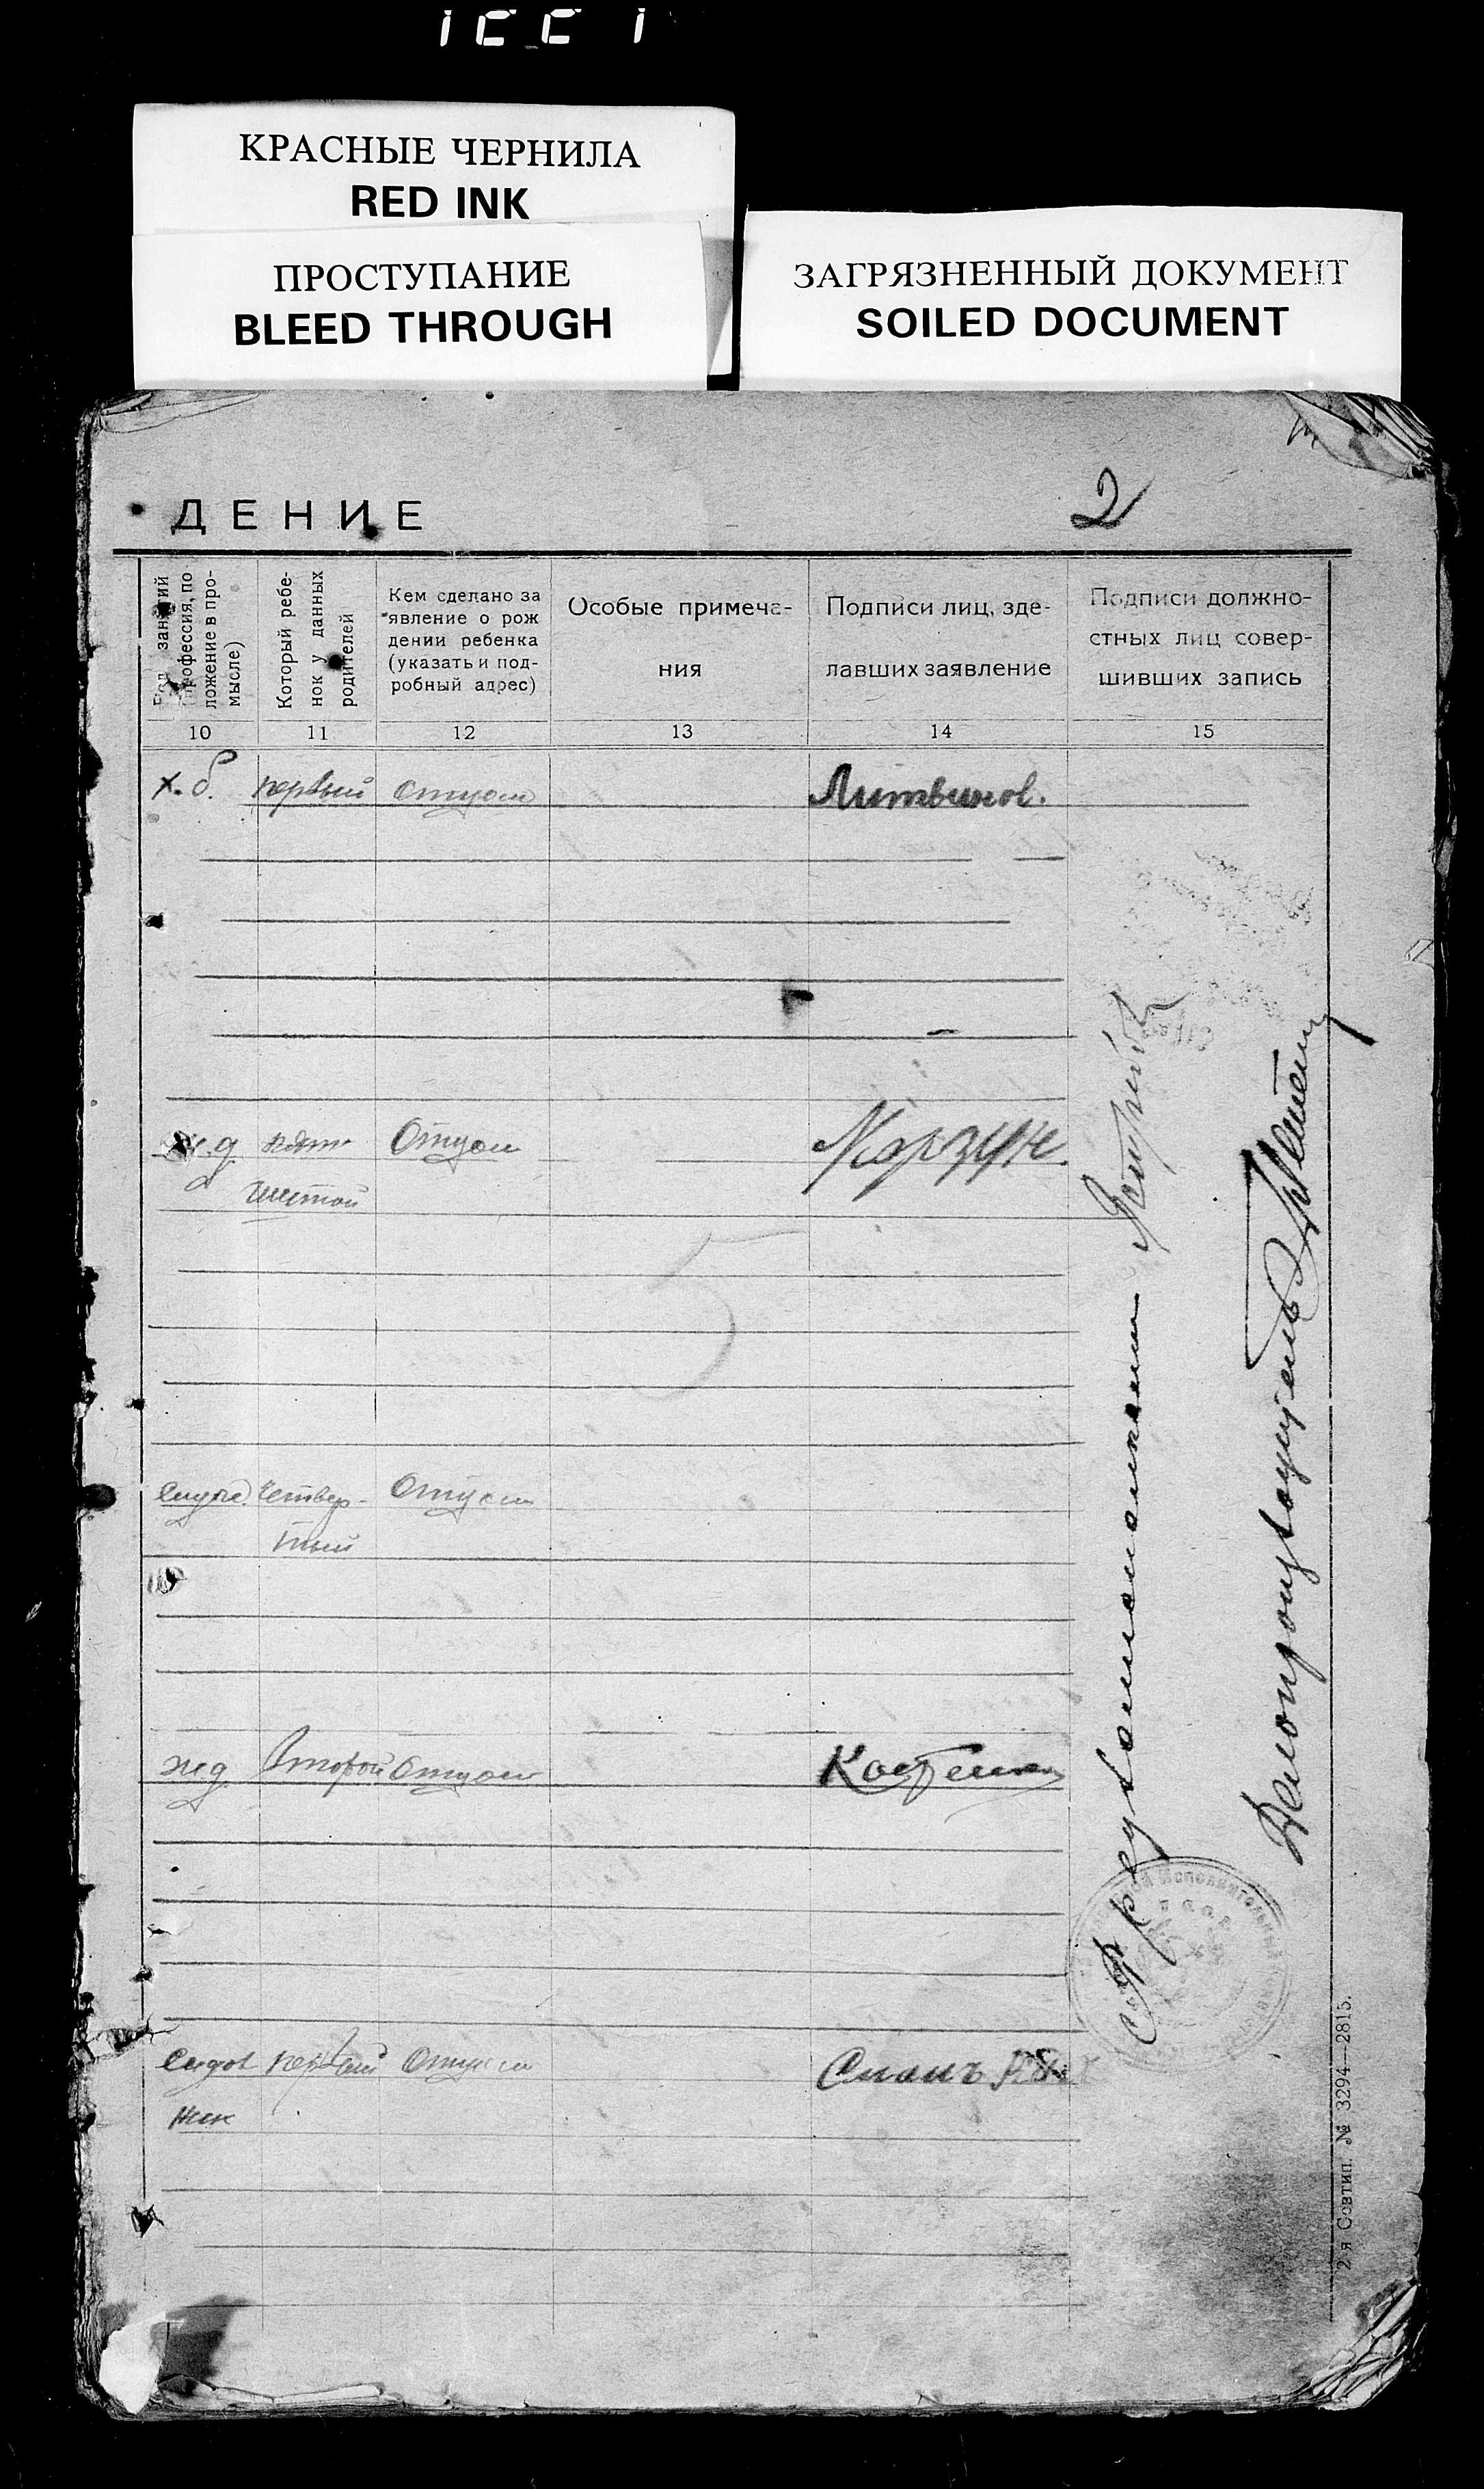 КРАСНЫЕ ЧЕРНИЛА
RED INK
ПРОСТУПАНИЕ
BLEED THROUGH
ЗАГРЯЗНЕННЫЙ ДОКУМЕНТ
SOILED DOCUMENT
2
ДЕНИЕ
Род занятий
(профессия, по
ложение в про-
мысле)
Который ребе-
нок у данных
родителей
Кем сделано за
явление о рож
дении ребенка
(указать и под-
робный адрес)
Особые примеча-
ния
Подписи лиц, зде-
лавших заявление
Подписи должно-
стных лиц совер-
шивших запись
10 11 12 13 14 15
х.б. первый отцом Литвинов.
ж.д пят Отцом Корзун.
шестой
5
служ. Четвер- Отцом
тый
жд Второй Отцом Костенко
садов первый Отцом
ник
Делопроизводитель
2-я Совтип. № 3294—2815.